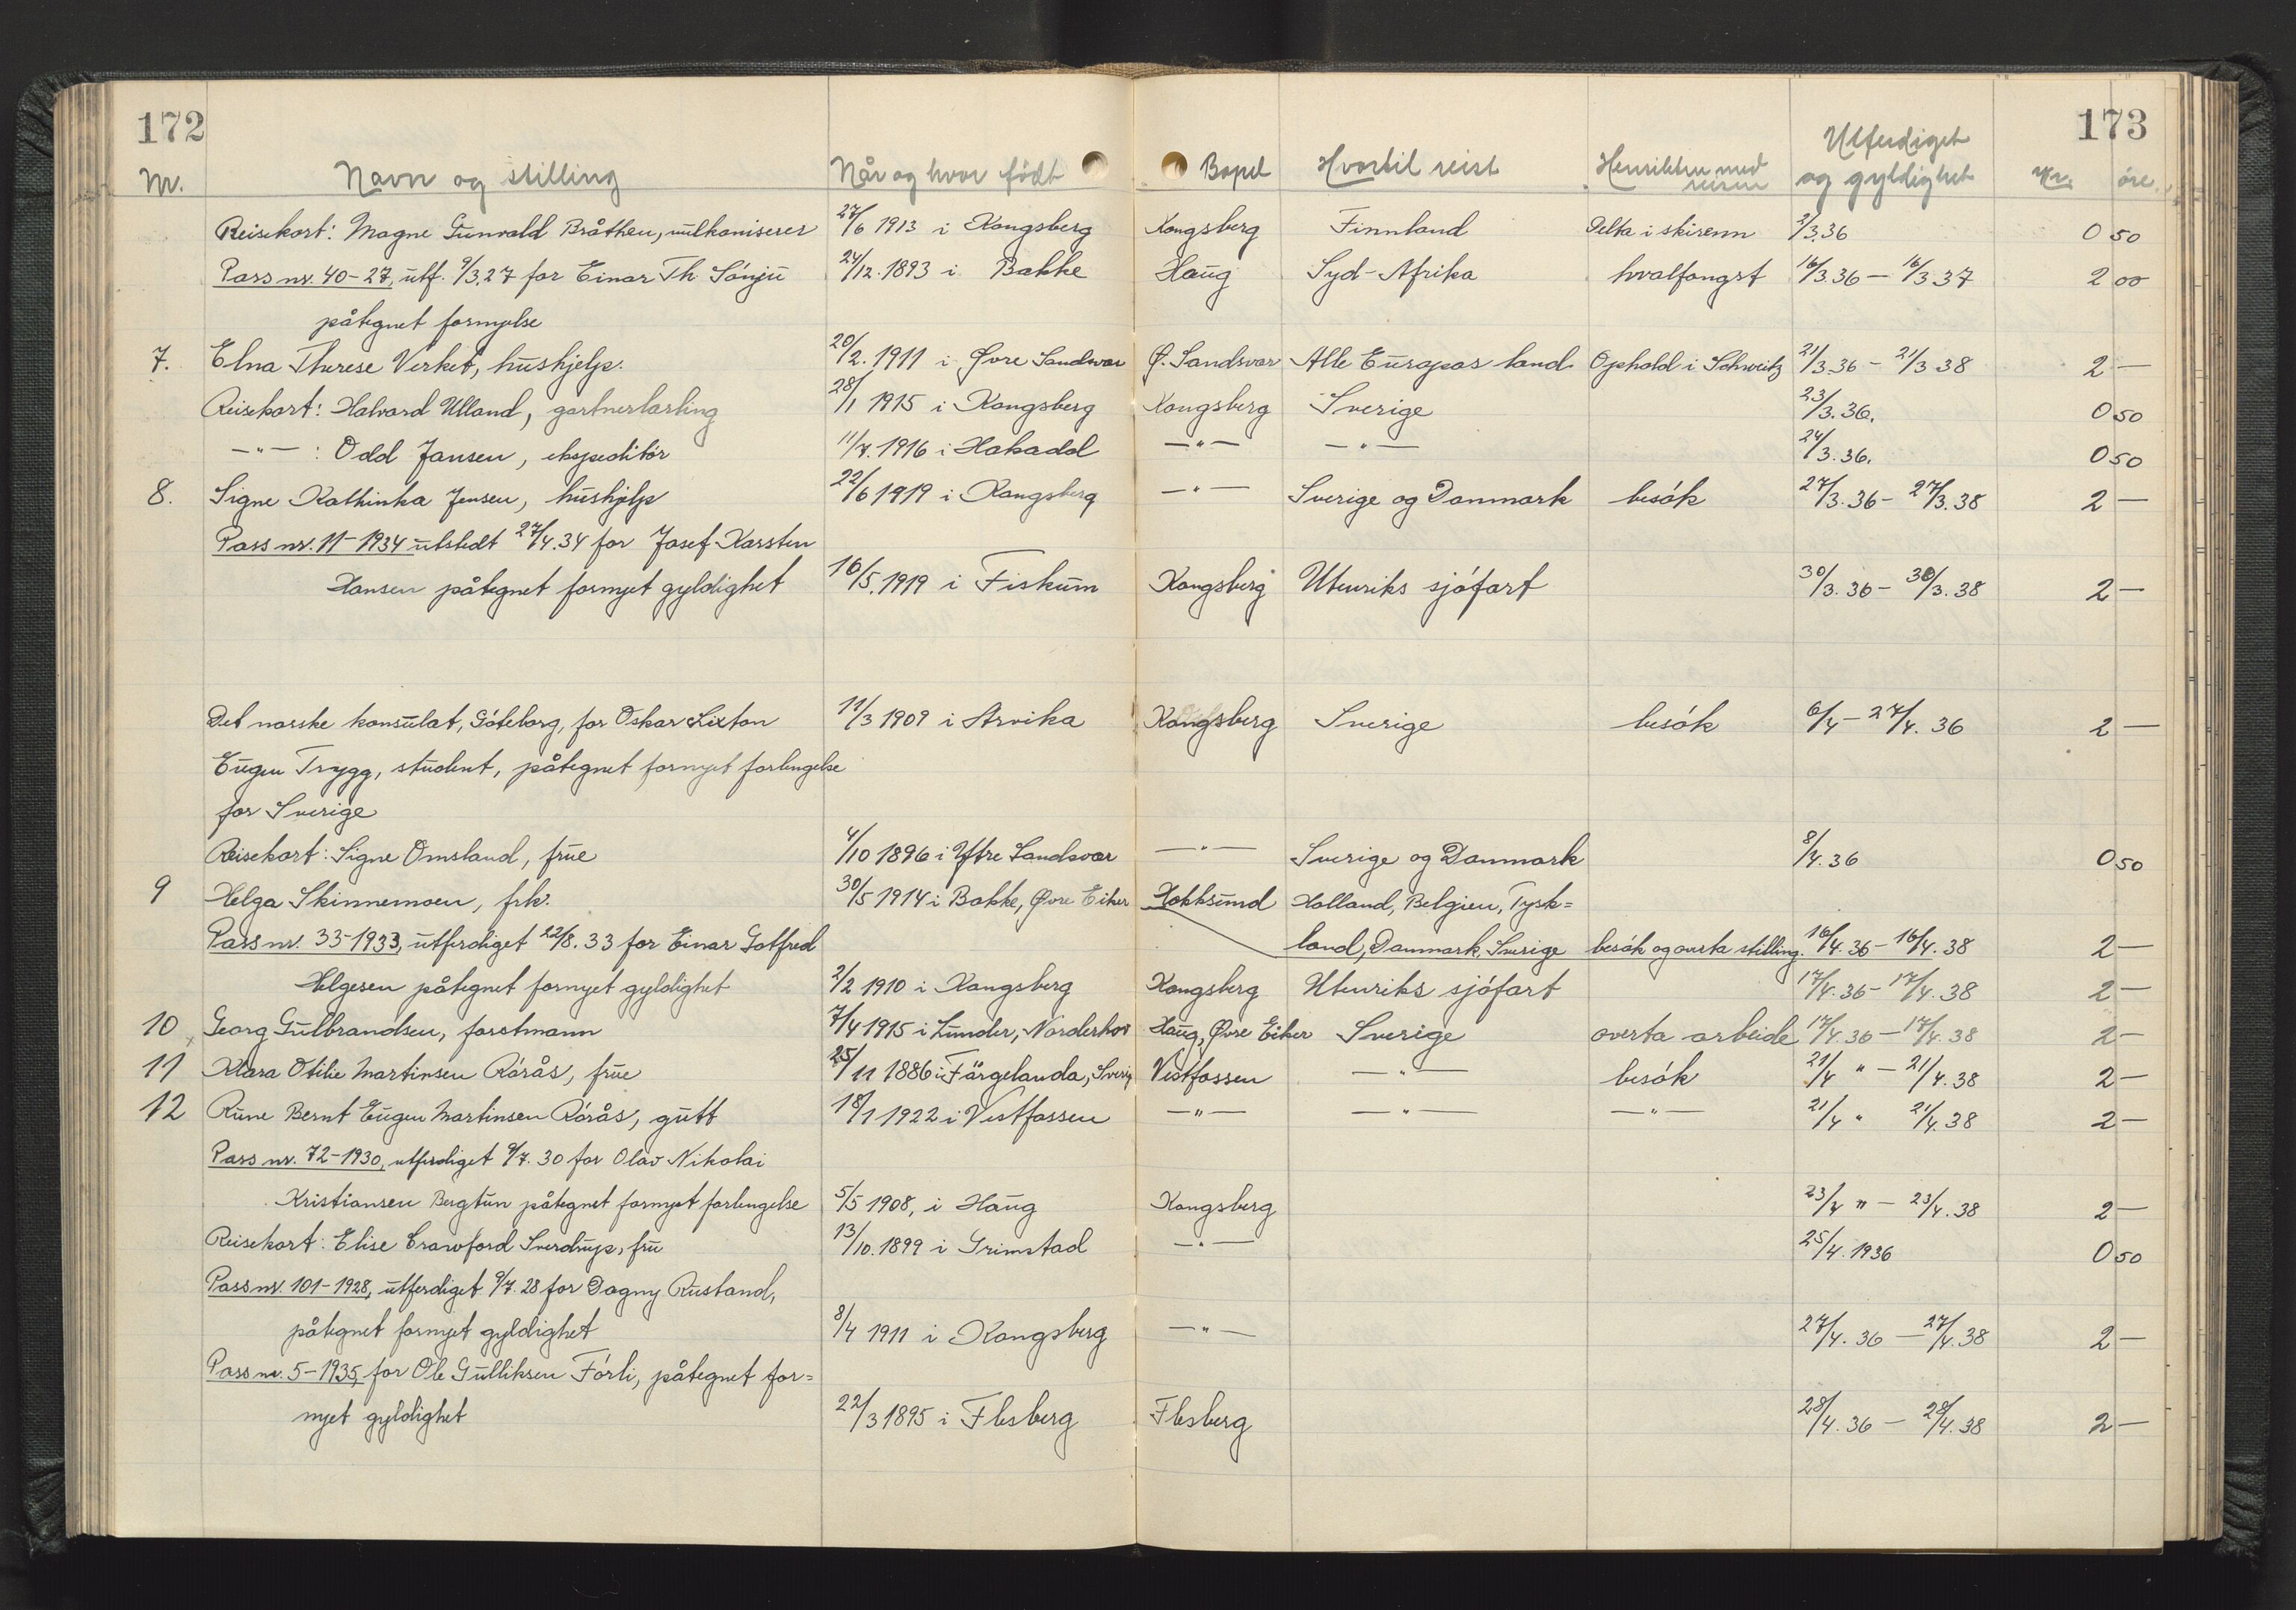 172 173
Nr. Navn og stilling Når og hvor født Bopel Hvortil reist Hensikten med reisen Utferdiget og gyldighet Kr. øre
Reisekort: Magne Gunvald Bråthen, vulkaniserer 27/6 1913 i Kongsberg Kongsberg Finnland Delta i skirenn 2/3.36 0 50
Pass nr. 40-27, utf. 9/3.27 for Einar Th Sönju 24/12.1893 i Bakke Haug Syd-Afrika hvalfangst 16/3.36 - 16/3 37 2 00
påtegnet fornyelse
7. Elna Therese Verket, hushjelp. 20/2.1911 i Øvre Sandsvær Ø. Sandsvær Alle Europas land Ophold i Schweitz 21/3.36 - 21/3 38 2 —
Reisekort: Halvard Ulland, gartnerlærling 28/1 1915 i Kongsberg Kongsberg Sverige 23/3.36. 0 50
—"— : Odd Jansen, ekspeditör 11/7.1916 i Hakadal —"— —"— 24/3.36. 0 50
8. Signe Kathinka Jensen, hushjelp 22/6 1919 i Kongsberg —"— Sverige og Danmark besök 27/3.36 - 27/3.38 2 —
Pass nr. 11-1934 utstedt 27/4.34 for Josef Karsten
Hansen påtegnet fornyet gyldighet 16/5.1919 i Fiskum Kongsberg Utenriks sjöfart 30/3.36 - 30/3.38 2 —
Det norske konsulat, Göteborg, for Oskar Sixton 11/3 1909 i Arvika Kongsberg Sverige besök 6/4 - 27/4.36 2 —
Eugen Trygg, student, påtegnet fornyet forlengelse
for Sverige
Reisekort: Signe Omsland, frue 4/10 1896 i Ytre Sandsvær —"— Sverige og Danmark 8/4.36 0 50
9 Helga Skinnemoen, frk. 30/5 1914 i Bakke, Øvre Eiker Hokksund Holland, Belgien, Tysk=
Pass nr. 33-1933, utferdiget 22/8.33 for Einar Gotfred land, Danmark, Sverige besök og overta stilling. 16/4.36 - 16/4.38 2 —
Helgesen påtegnet fornyet gyldighet 2/2 1910 i Kongsberg Kongsberg Utenriks sjöfart 17/4.36 - 17/4.38 2 —
10 Georg Gulbrandsen, forstmann 7/4 1915 i Lunder, Norderhov Haug, Øvre Eiker Sverige overta arbeide 17/4.36 - 17/4.38 2 —
11 Klara Otilie Martinsen Rörås, frue 25/11 1886 i Färgelanda, Sverig Vestfossen —"— besök 21/4 " - 21/4.38 2 —
12 Rune Bernt Eugen Martinsen Rörås, gutt 18/1 1922 i Vestfossen —"— —"— —"— 21/4 " 21/4.38 2 —
Pass nr. 72-1930, utferdiget 9/7.30 for Olav Nikolai
Kristiansen Bergtun påtegnet fornyet forlengelse 5/5 1908, i Haug Kongsberg 23/4 " - 23/4.38 2 —
Reisekort: Elise Crawford Sverdrup, fru 13/10.1899 i Grimstad —"— 25/4.1936 0 50
Pass nr. 101-1928, utferdiget 9/7.28 for Dagny Rustand,
påtegnet fornyet gyldighet 8/4 1911 i Kongsberg —"— 27/4.36 - 27/4.38 2 —
Pass nr. 5-1935, for Ole Gulliksen Förli, påtegnet for=
nyet gyldighet 22/3 1895 i Flesberg Flesberg 28/4.36 - 28/4.38 2 —